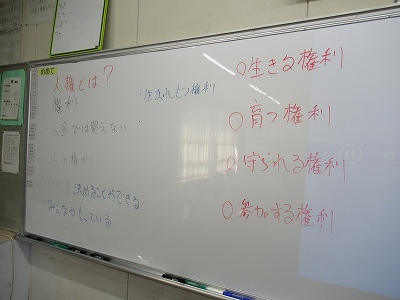 めあて
人権とは？
権利
生まれもつ権利
お金では買えない
人の権利
決めることができる
みんながもっている
○生きる権利
○育つ権利
○守られる権利
○参加する権利